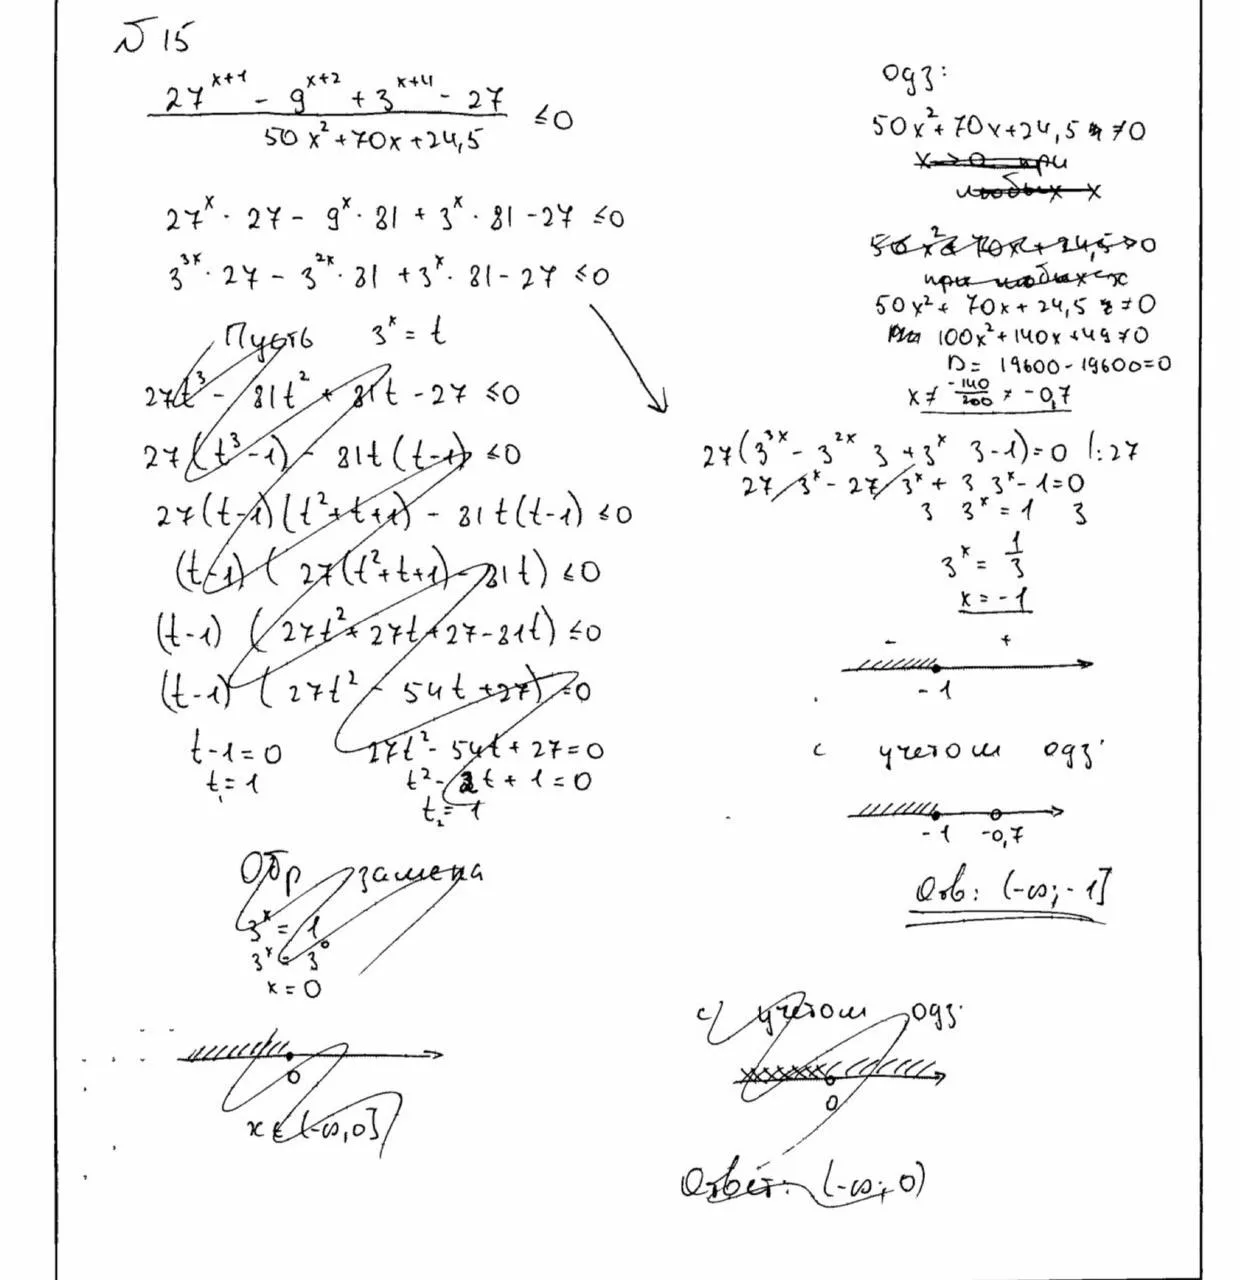 № 15
27^{x+1} - 9^{x+2} + 3^{x+4} - 27
50x² + 70x + 24,5
≤ 0
27^x · 27 - 9^x · 81 + 3^x · 81 - 27 ≤ 0
3^{3x} · 27 - 3^{2x} · 81 + 3^x · 81 - 27 ≤ 0
Пусть 3^x = t
27t³ - 81t² + 81t - 27 ≤ 0
27(t³ - 1) - 81t(t-1) ≤ 0
27(t-1)(t²+t+1) - 81t(t-1) ≤ 0
(t-1)(27(t²+t+1) - 81t) ≤ 0
(t-1)(27t² + 27t + 27 - 81t) ≤ 0
(t-1)(27t² - 54t + 27) ≤ 0
t-1 = 0 27t² - 54t + 27 = 0
t₁ = 1 t² - 2t + 1 = 0
t₂ = 1
Обр замена
3^x = 1
3^x = 3^0
x = 0
0
x ∈ (-∞, 0]
ОДЗ:
50x² + 70x + 24,5 ≠ 0
x > 0 при
любых x
50x² + 70x + 24,5 > 0
при любых x
50x² + 70x + 24,5 ≠ 0
100x² + 140x + 49 ≠ 0
D = 19600 - 19600 = 0
x ≠ -140/200 ≠ -0,7
27(3^{3x} - 3^{2x} 3 + 3^x 3 - 1) = 0 |:27
27 3^x - 27 3^x + 3 3^x - 1 = 0
3 3^x = 1 3
3^x = 1/3
x = -1
- +
-1
с учетом ОДЗ:
-1 -0,7
Отв: (-∞; -1]
с учетом ОДЗ:
0
Ответ: (-∞; 0)